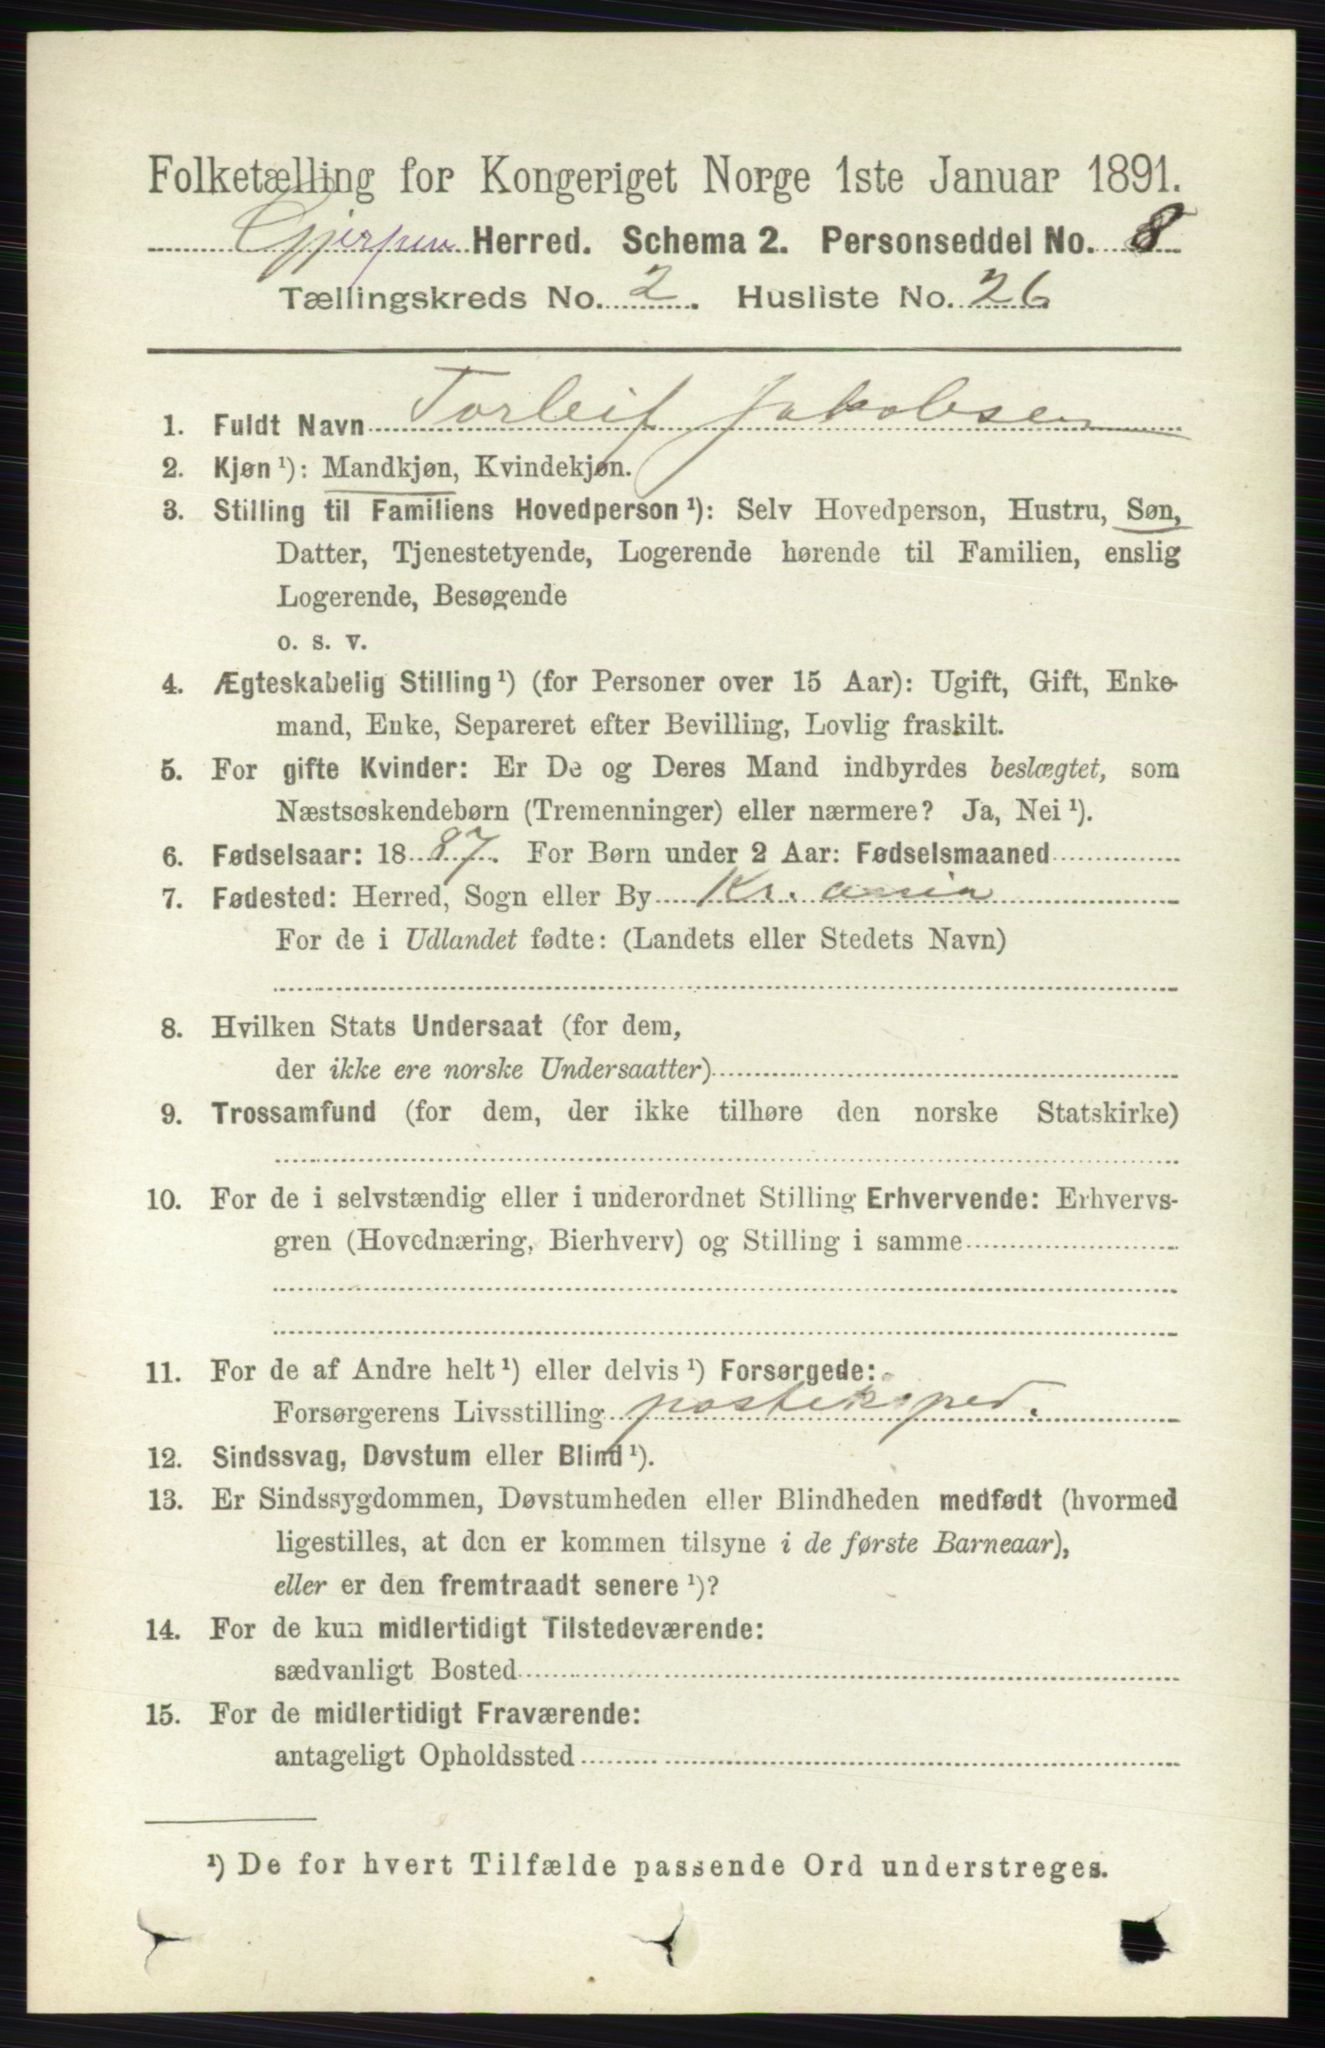 Folketælling for Kongeriget Norge 1ste Januar 1891.
Gjerpen Herred. Schema 2. Personseddel No. 8
Tællingskreds No. 2. Husliste No. 26
1. Fuldt Navn Torleif Jakobsen
2. Kjøn ¹): Mandkjøn, Kvindekjøn.
3. Stilling til Familiens Hovedperson ¹): Selv Hovedperson, Hustru, Søn,
Datter, Tjenestetyende, Logerende hørende til Familien, enslig
Logerende, Besøgende
o. s. v.
4. Ægteskabelig Stilling ¹) (for Personer over 15 Aar): Ugift, Gift, Enke-
mand, Enke, Separeret efter Bevilling, Lovlig fraskilt.
5. For gifte Kvinder: Er De og Deres Mand indbyrdes beslægtet, som
Næstsøskendebørn (Tremenninger) eller nærmere? Ja, Nei ¹).
6. Fødselsaar: 1887. For Børn under 2 Aar: Fødselsmaaned
7. Fødested: Herred, Sogn eller By Kr. ania
For de i Udlandet fødte: (Landets eller Stedets Navn)
8. Hvilken Stats Undersaat (for dem,
der ikke ere norske Undersaatter)
9. Trossamfund (for dem, der ikke tilhøre den norske Statskirke)
10. For de i selvstændig eller i underordnet Stilling Erhvervende: Erhvervs-
gren (Hovednæring, Bierhverv) og Stilling i samme
11. For de af Andre helt ¹) eller delvis ¹) Forsørgede:
Forsørgerens Livsstilling posteksped.
12. Sindssvag, Døvstum eller Blind ¹).
13. Er Sindssygdommen, Døvstumheden eller Blindheden medfødt (hvormed
ligestilles, at den er kommen tilsyne i de første Barneaar),
eller er den fremtraadt senere ¹)?
14. For de kun midlertidigt Tilstedeværende:
sædvanligt Bosted
15. For de midlertidigt Fraværende:
antageligt Opholdssted
¹) De for hvert Tilfælde passende Ord understreges.